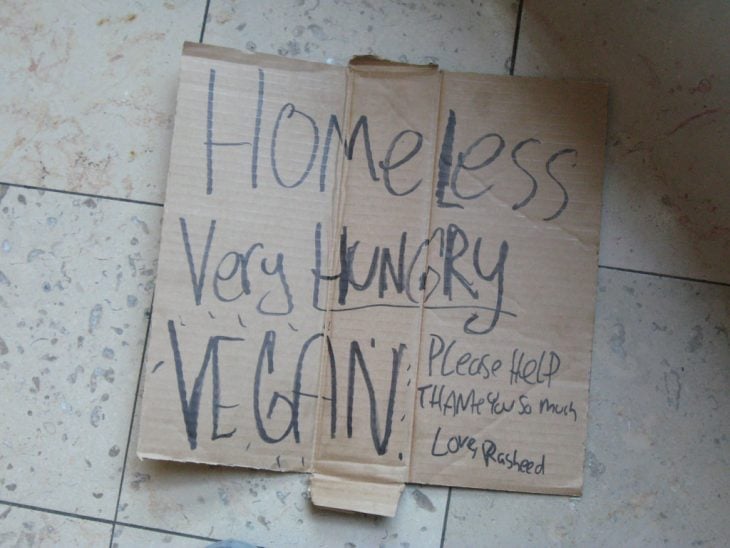 HomeLess
Very HUNGRY
VEGAN.
PLease HELP
THANKe You So much
Love, Rasheed